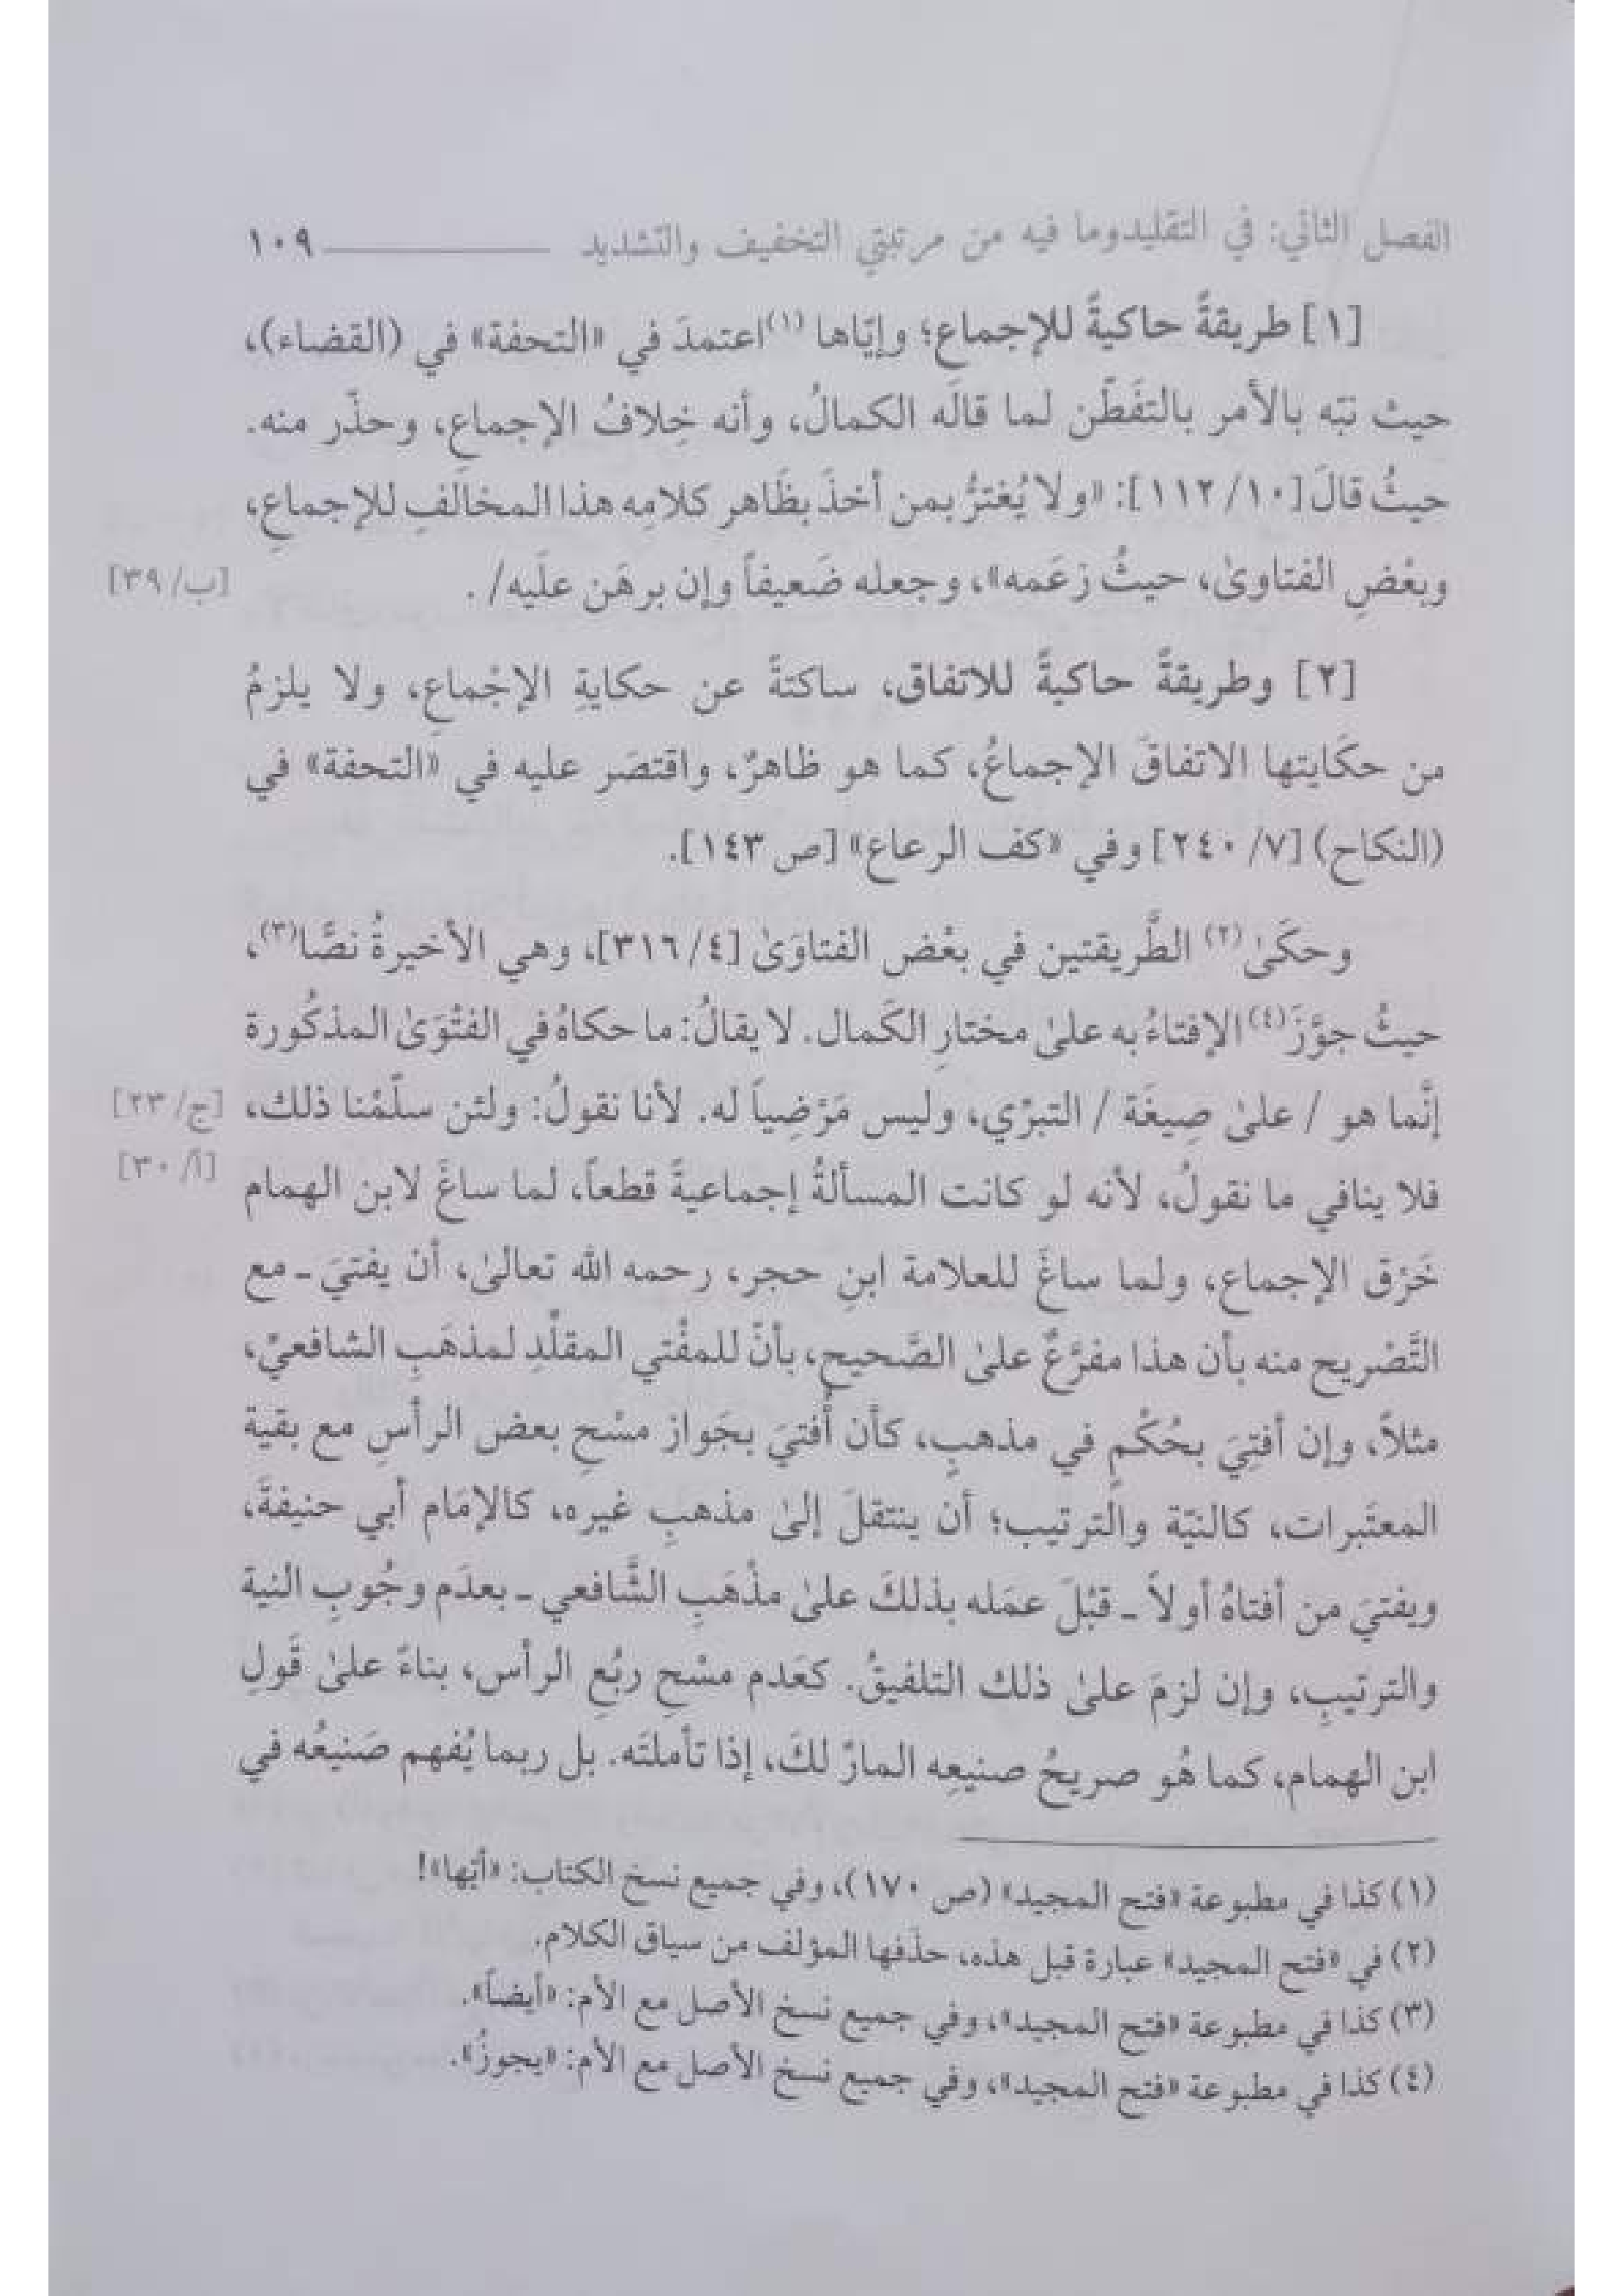 الفصل الثاني: في التقليدوما فيه من مرتبتي التخفيف والتشديد ١٠٩
[١] طريقةً حاكيةً للإجماع؛ وإيّاها (١) اعتمدَ في «التحفة» في (القضاء)،
حيث نبّه بالأمر بالتفَطّن لما قالَه الكمالُ، وأنه خِلافُ الإجماعِ، وحذّر منه.
حيثُ قالَ [١٠/ ١١٢]: «ولا يُغترُّ بمن أخذَ بظَاهر كلامِه هذا المخالَفِ للإجماعِ،
وبعْضِ الفتاوىٰ، حيثُ زعَمه»، وجعله ضَعيفاً وإن برهَن علَيه/ .
[ب/ ٣٩]
[٢] وطريقةً حاكيةً للاتفاق، ساكتةً عن حكايةِ الإجْماعِ، ولا يلزمُ
من حكَايتها الاتفاقَ الإجماعُ، كما هو ظاهرٌ، واقتصَر عليه في «التحفة» في
(النكاح) [٧/ ٢٤٠] وفي «كف الرعاع» [ص ١٤٣].
وحكَىٰ (٢) الطَّريقتين في بعْض الفتاوَىٰ [٤/ ٣١٦]، وهي الأخيرةُ نصًّا(٣)،
حيثُ جوَّزَ(٤) الإفتاءُ به علىٰ مختارِ الكَمال. لا يقالُ: ما حكاهُ في الفتْوَىٰ المذكُورة
إنَّما هو / علىٰ صِيغَة / التبرّي، وليس مَرْضِياً له. لأنا نقولُ: ولئن سلّمْنا ذلك،
[ج/ ٢٣]
[أ/ ٣٠]
فلا ينافي ما نقولُ، لأنه لو كانت المسألةُ إجماعيةً قطعاً، لما ساغَ لابن الهمام
خَرْق الإجماع، ولما ساغَ للعلامة ابنِ حجر، رحمه الله تعالىٰ، أن يفتيَ ـ مع
التَّصْريح منه بأن هذا مفرَّعٌ علىٰ الصَّحيح، بأنّ للمفْتي المقلِّدِ لمذهَبِ الشافعيّ،
مثلاً، وإن أفتِيَ بحُكْمٍ في مذهبٍ، كأن أُفتيَ بجَواز مسْحِ بعض الرأسِ مع بقية
المعتَبرات، كالنيّة والترتيب؛ أن ينتقلَ إلىٰ مذهبِ غيره، كالإمَام أبي حنيفةَ،
ويفتيَ من أفتاهُ أولاً ـ قبْلَ عمَله بذلكَ علىٰ مذْهَبِ الشَّافعي ـ بعدَم وجُوبِ النية
والترتيبِ، وإن لزمَ علىٰ ذلك التلفيقُ. كعَدم مسْحِ ربُعِ الرأس، بناءً علىٰ قَولِ
ابن الهمام، كما هُو صريحُ صنيعِه المارّ لكَ، إذا تأملتَه. بل ربما يُفهم صَنيعُه في
(١) كذا في مطبوعة «فتح المجيد» (ص ١٧٠)، وفي جميع نسخ الكتاب: «أيّها»!
(٢) في «فتح المجيد» عبارة قبل هذه، حذَفها المؤلف من سياق الكلام.
(٣) كذا في مطبوعة «فتح المجيد»، وفي جميع نسخ الأصل مع الأم: «أيضاً».
(٤) كذا في مطبوعة «فتح المجيد»، وفي جميع نسخ الأصل مع الأم: «يجوزُ».